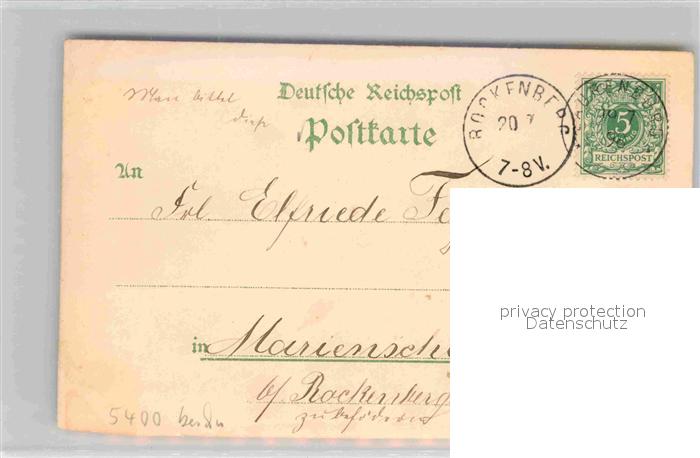 Man bittet
dies
Deutsche Reichspost
Postkarte
ROCKENBERG
20 7
7-8V.
5
REICHSPOST
An
Frl Elfriede
in Marienschl
b/ Rockenberg
5400
privacy protection
Datenschutz